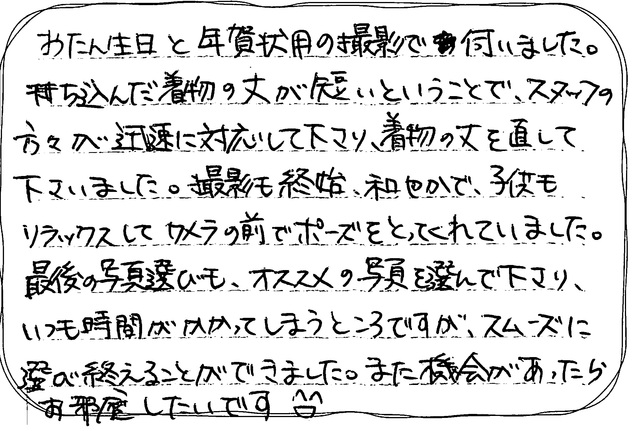 おたん生日と年賀状用の撮影で伺いました。
持ち込んだ着物の丈が短いということで、スタッフの
方々が迅速に対応して下さり、着物の丈を直して
下さいました。撮影も終始、和やかで、子供も
リラックスしてカメラの前でポーズをとってくれていました。
最後の写真選びも、オススメの写真を選んで下さり、
いつも時間がかかってしまうところですが、スムーズに
選び終えることができました。また機会があったら
お邪魔したいです